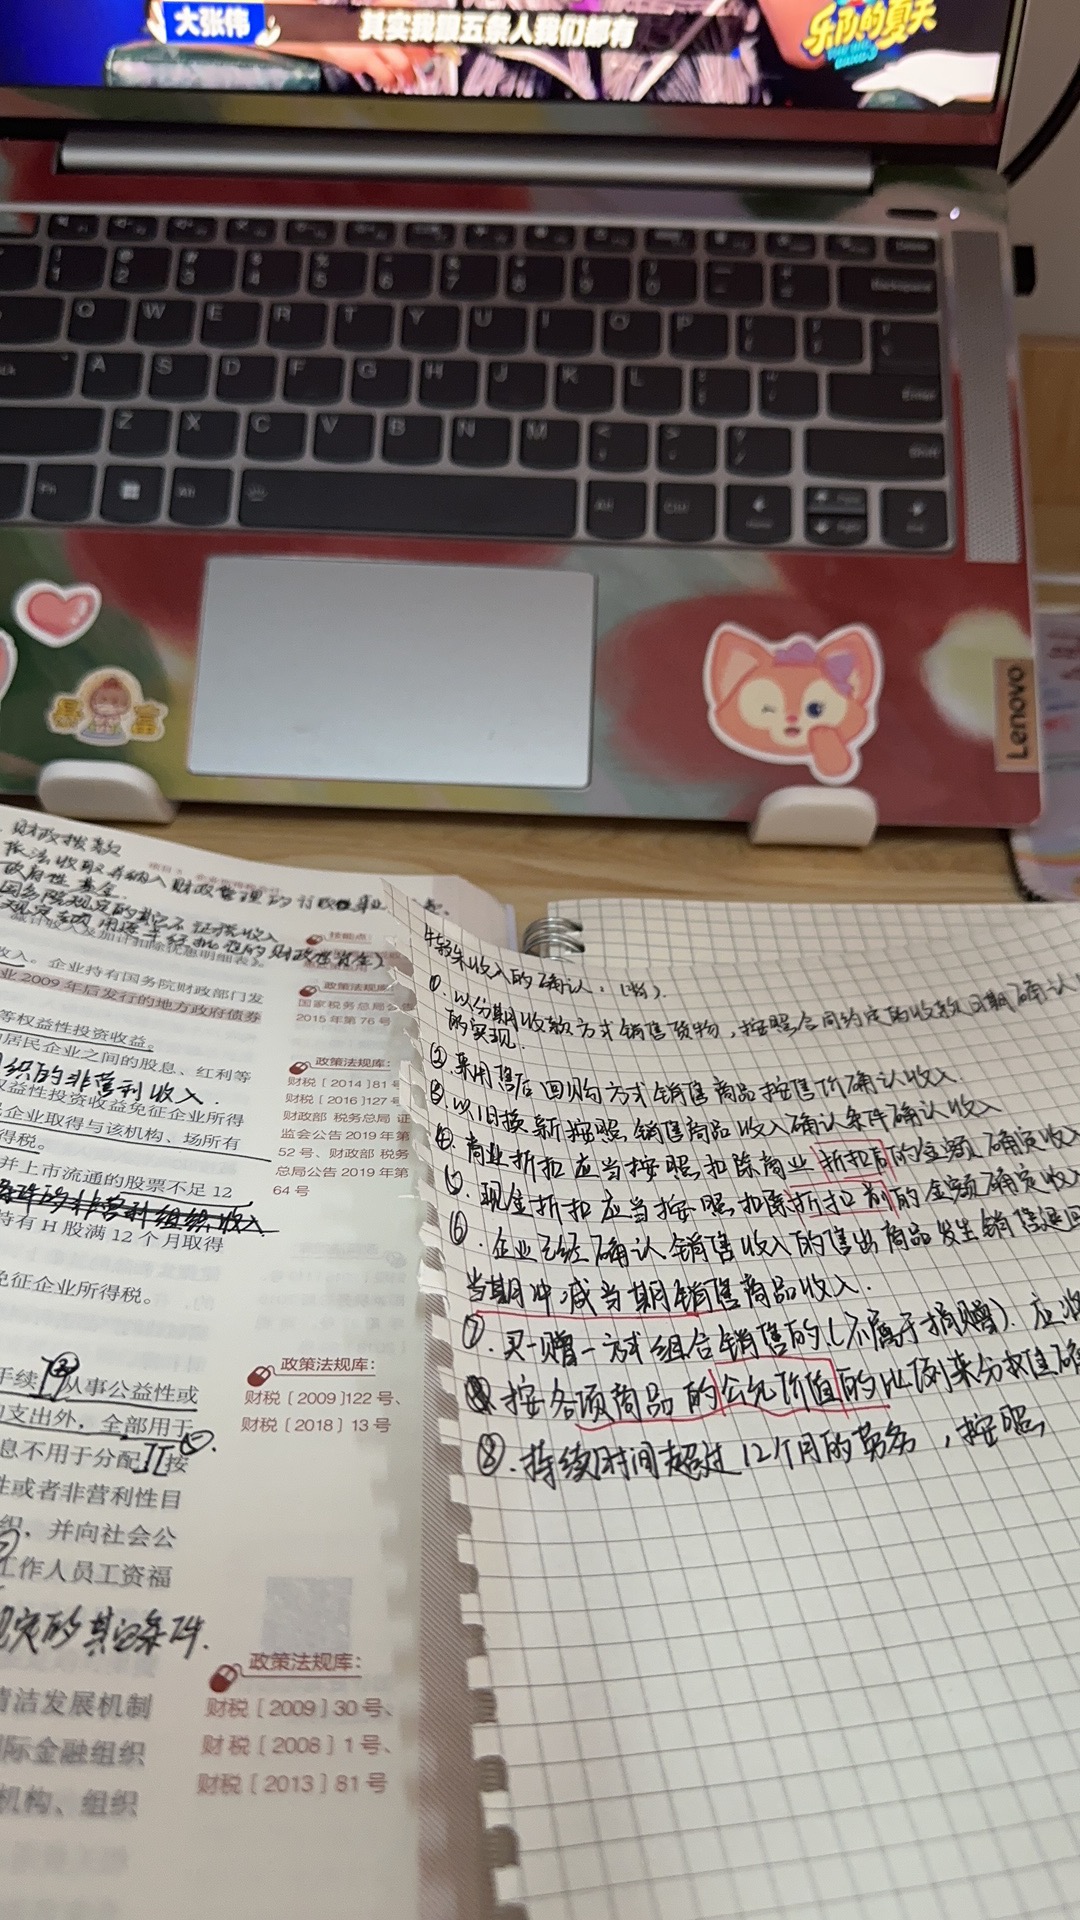 大张伟
其实我跟五条人我们都有
乐队的夏天
Q W E R T Y U I O P
A S D F G H J K L
Z X C V B N M
Lenovo
暴富
财政拨款
依法收取并纳入财政管理的行政事业
政府性基金
国务院规定的其它不征税收入
技能点
收入。企业持有国务院财政部门发
业 2009 年后发行的地方政府债券
政策法规库:
国家税务总局公告
2015 年第 76 号
等权益性投资收益。
居民企业之间的股息、红利等
组织的非营利收入
权益性投资收益免征企业所得
企业取得与该机构、场所有
得税。
并上市流通的股票不足 12
持有 H 股满 12 个月取得
免征企业所得税。
政策法规库:
财税〔2014〕81 号
财税〔2016〕127 号
财政部 税务总局 证
监会公告 2019 年第
52 号、财政部 税务
总局公告 2019 年第
64 号
手续
从事公益性或
支出外,全部用于
息不用于分配
按
性或者非营利性目
织,并向社会公
工作人员工资福
规定的其它条件.
政策法规库:
财税〔2009〕122 号、
财税〔2018〕13 号
清洁发展机制
际金融组织
机构、组织
政策法规库:
财税〔2009〕30 号、
财税〔2008〕1 号、
财税〔2013〕81 号
特殊收入的确认:
①.以分期收款方式销售货物,按照合同约定的收款日期确认
的实现.
②.采用售后回购方式销售商品按售价确认收入.
③.以旧换新按照销售商品收入确认条件确认收入
④.商业折扣应当按照扣除商业折扣后的金额确定收入
⑤.现金折扣应当按照扣除折扣前的金额确定收入
⑥.企业已经确认销售收入的售出商品发生销售退回
当期冲减当期销售商品收入.
⑦.买一赠一方式组合销售的(不属于捐赠).应将
按各项商品的公允价值的比例来分摊确
⑧.持续时间超过12个月的劳务,按照